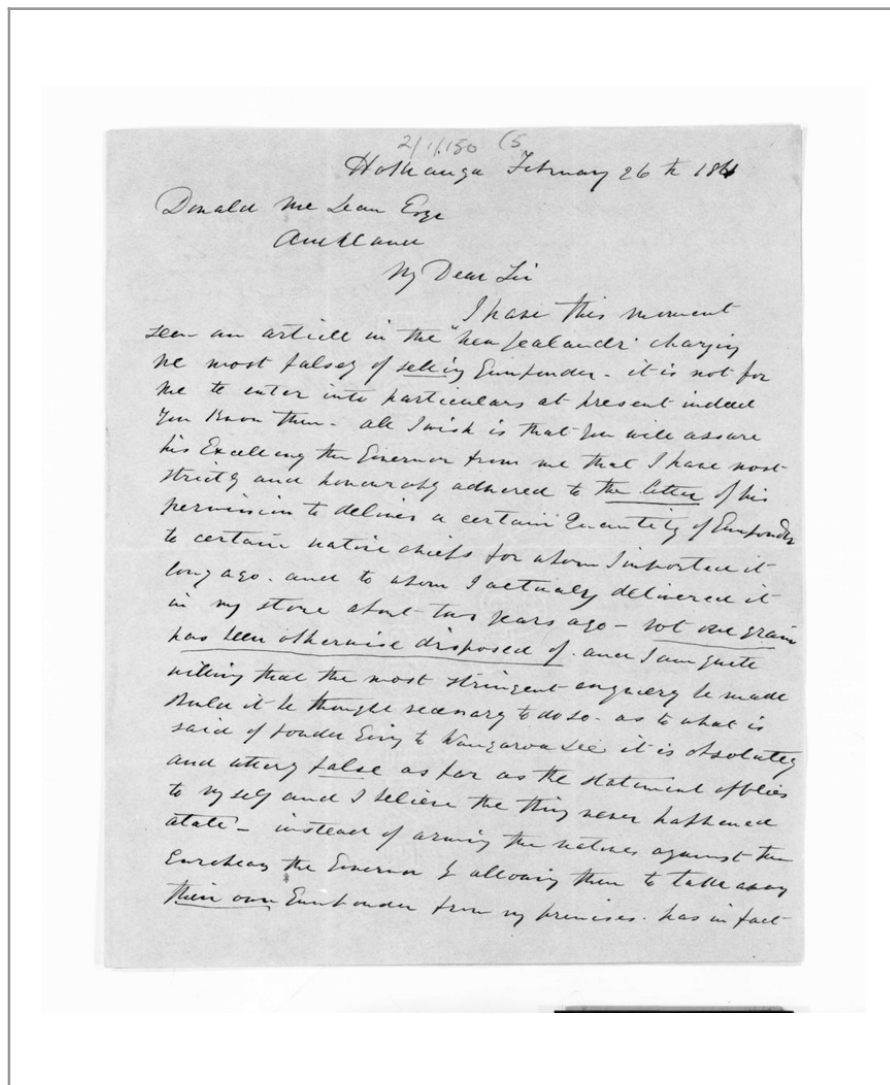 2/1/150 (5
Hokianga February 26th 1861
Donald McLean Esqr
Auckland
My Dear Sir
I have this moment
seen an article in the "New Zealander" charging
me most falsely of selling Gunpowder - it is not for
me to enter into particulars at present indeed
you know them - all I wish is that you will assure
his Excellency the Governor from me that I have most
strictly and honourably adhered to the letter of his
permission to deliver a certain Quantity of Gunpowder
to certain native chiefs for whom I imported it
long ago. and to whom I actually delivered it
in my store about two years ago - not one grain
has been otherwise disposed of. and I am quite
willing that the most stringent enquiery be made
should it be thought necessary to do so - as to what is
said of powder going to Wangaroa &c it is absolutely
and utterly false as far as the statement applies
to myself and I believe the thing never happened
atall - instead of arming the natives against the
Europeans the Governor by allowing them to take away
their own Gunpowder from my premises. has in fact